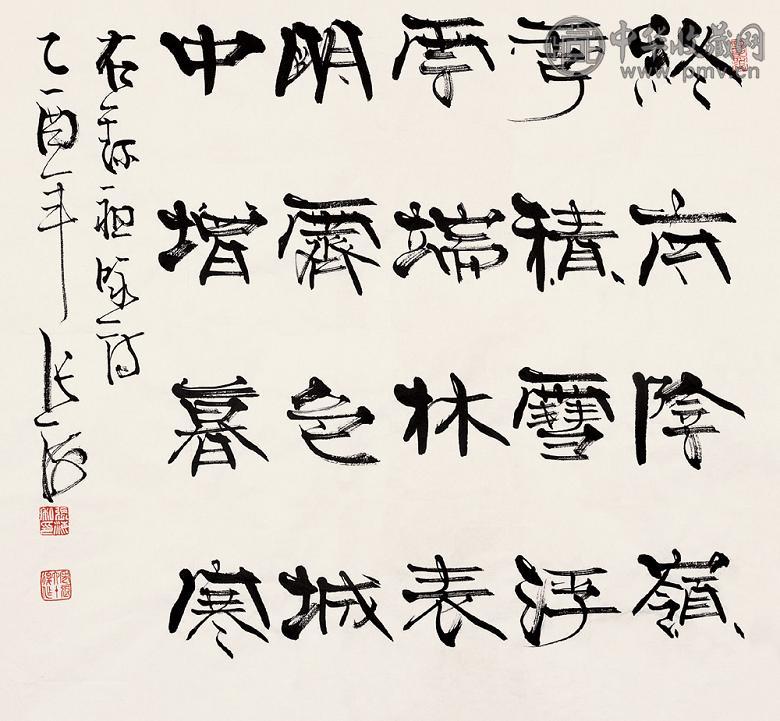 終南陰嶺
秀積雪浮
雲端林表
明霽色城
中增暮寒
右錄祖詠詩
乙酉年張海
中华收藏网
www.pmv.cn